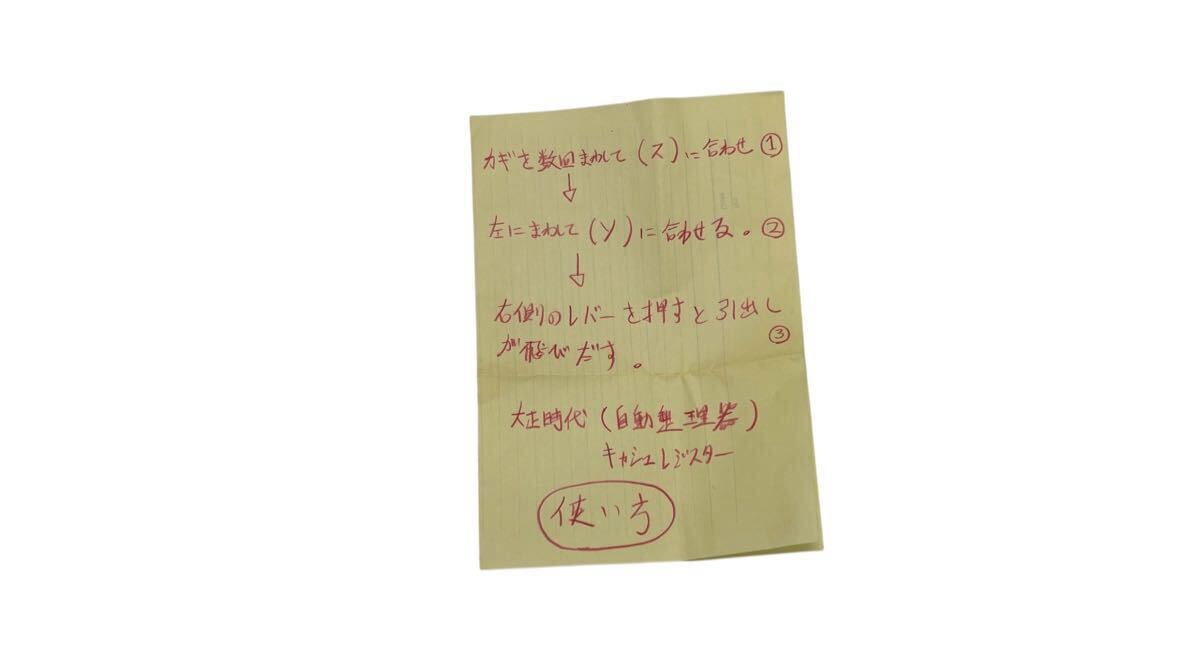 カギを数回まわして(ス)に合わせ①
↓
左にまわして(ソ)に合わせる。②
↓
右側のレバーを押すと引出し
が飛びだす。③
大正時代(自動整理器)
キャシュレジスター
使い方